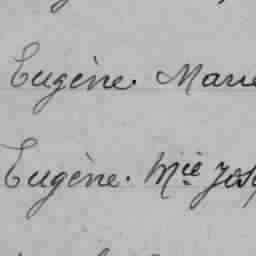 Eugène. Marie
Eugène. Mie Jos